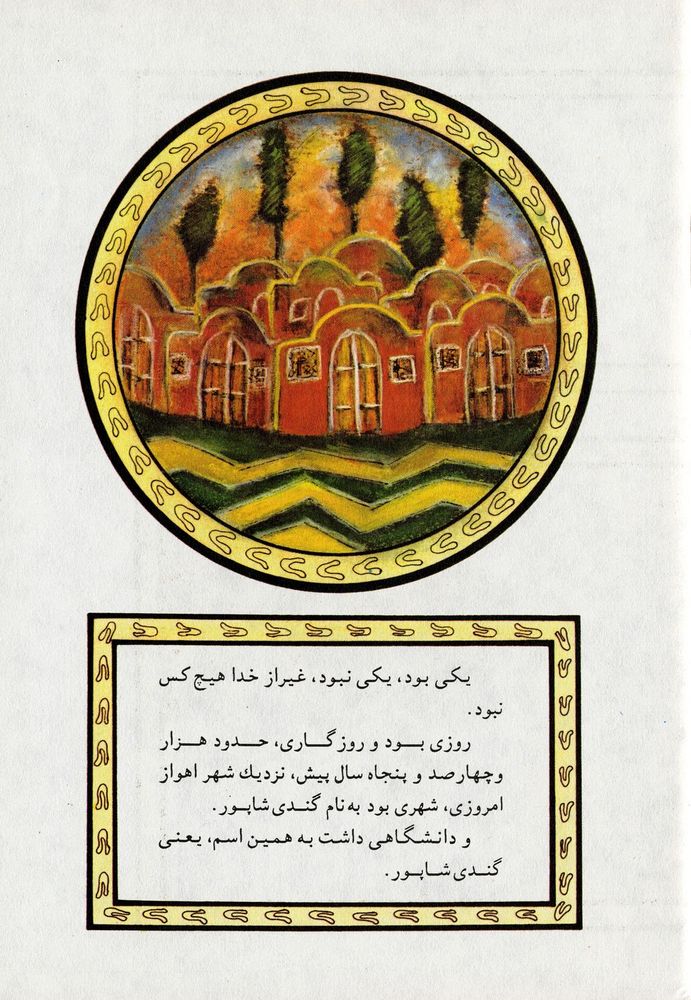 یکی بود، یکی نبود، غیراز خدا هیچ کس
نبود.
روزی بـــود و روزگـــاری، حــدود هــزار
وچهارصد و پنجاه سال پیش، نزدیك شهر اهواز
امروزی، شهری بود به‌نام گندی‌شاپـور.
و دانشگاهی داشت به همین اسم، یعنی
گندی‌شـاپـور.